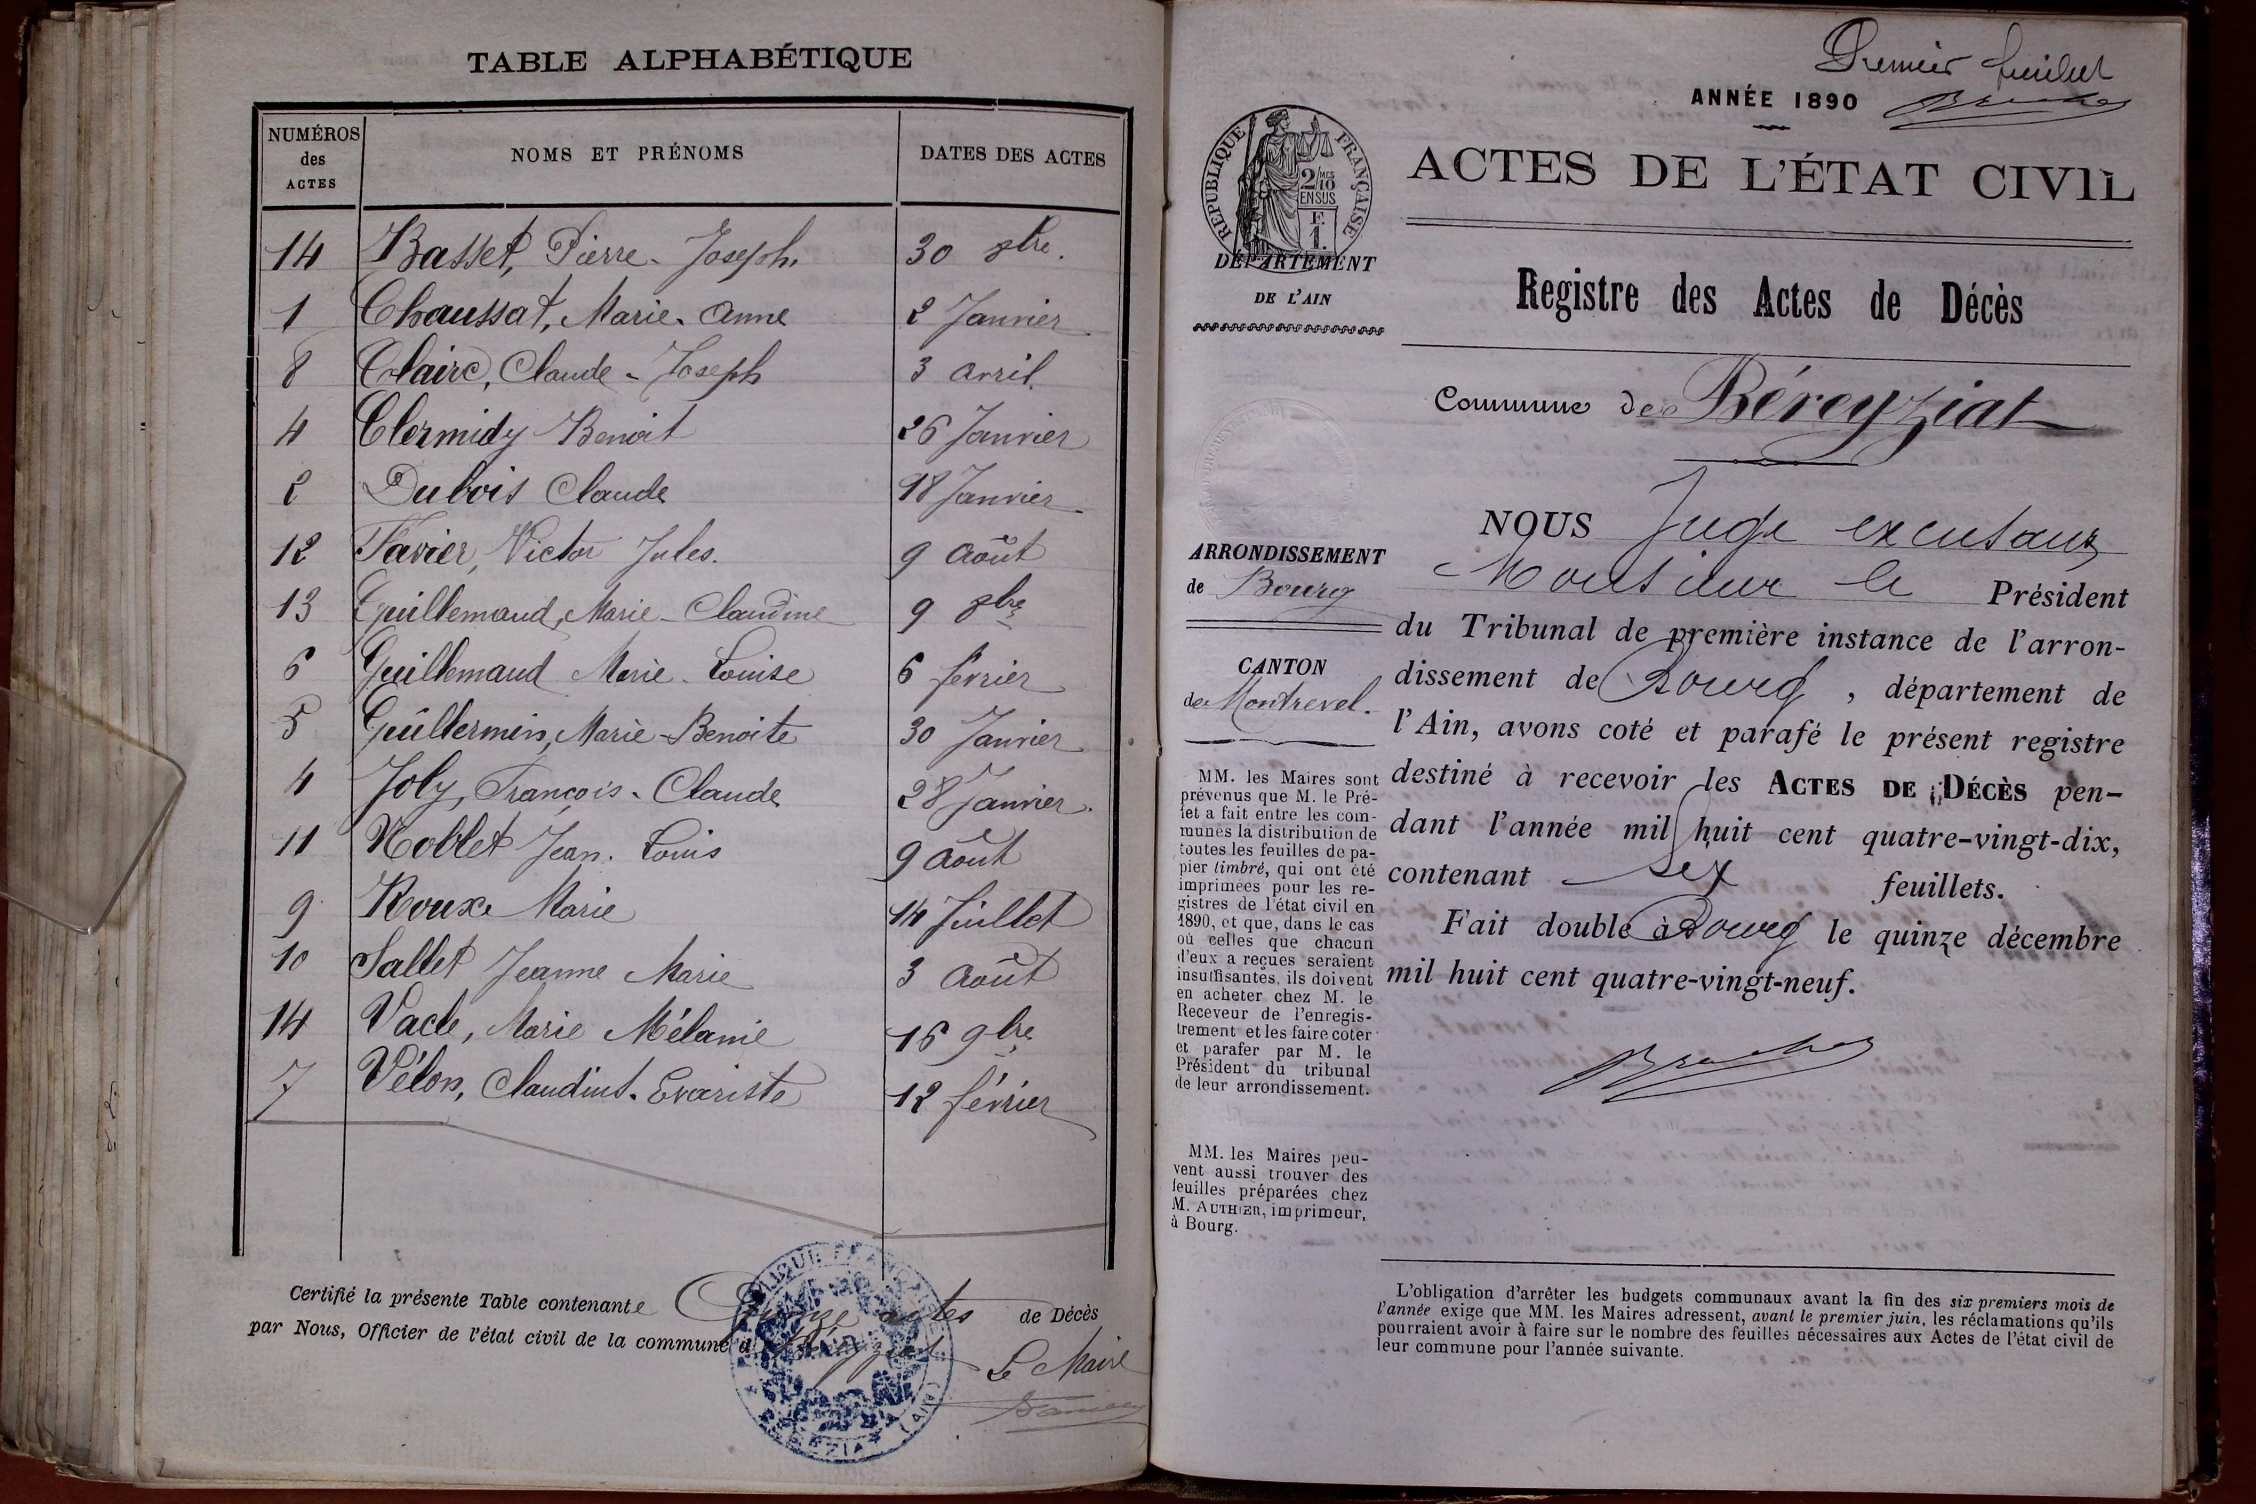 TABLE ALPHABÉTIQUE
NUMÉROS des ACTES NOMS ET PRÉNOMS DATES DES ACTES
14 Basset, Pierre-Joseph. 30 8bre.
1 Chaussat, Marie-Anne 2 Janvier
8 Claire, Claude-Joseph 3 avril.
4 Clermidy Benoit 26 Janvier
2 Dubois Claude 18 Janvier
12 Favier, Victor Jules. 9 Août
13 Guillemaud, Marie-Claudine 9 8bre
6 Guillemaud Marie-Louise 6 février
5 Guillermin, Marie-Benoite 30 Janvier
4 Joly, François-Claude 28 Janvier.
11 Noblet Jean-Louis 9 Août
9 Roux Marie 14 Juillet
10 Sallet Jeanne Marie 3 Août
14 Vacle, Marie Mélanie 16 9bre
7 Vélon, Claudius-Evariste 12 février
Certifié la présente Table contenant Quinze actes de Décès
par Nous, Officier de l'état civil de la commune d
Le Maire
Premier feuillet
ANNÉE 1890
ACTES DE L'ÉTAT CIVIL
RÉPUBLIQUE FRANÇAISE
2/10 MES
EN SUS
F.
1.
DÉPARTEMENT
DE L'AIN
Registre des Actes de Décès
Commune de Béreyziat
ARRONDISSEMENT
de Bourg
CANTON
de Montrevel.
MM. les Maires sont
prévenus que M. le Pré-
fet a fait entre les com-
munes la distribution de
toutes les feuilles de pa-
pier timbré, qui ont été
imprimées pour les re-
gistres de l'état civil en
1890, et que, dans le cas
où celles que chacun
d'eux a reçues seraient
insuffisantes, ils doivent
en acheter chez M. le
Receveur de l'enregis-
trement et les faire coter
et parafer par M. le
Président du tribunal
de leur arrondissement.
MM. les Maires peu-
vent aussi trouver des
feuilles préparées chez
M. AUTHIER, imprimeur,
à Bourg.
NOUS Juge excusant
Monsieur le Président
du Tribunal de première instance de l'arron-
dissement de Bourg, département de
l'Ain, avons coté et parafé le présent registre
destiné à recevoir les ACTES DE DÉCÈS pen-
dant l'année mil huit cent quatre-vingt-dix,
contenant six feuillets.
Fait double à Bourg le quinze décembre
mil huit cent quatre-vingt-neuf.
L'obligation d'arrêter les budgets communaux avant la fin des six premiers mois de
l'année exige que MM. les Maires adressent, avant le premier juin, les réclamations qu'ils
pourraient avoir à faire sur le nombre des feuilles nécessaires aux Actes de l'état civil de
leur commune pour l'année suivante.